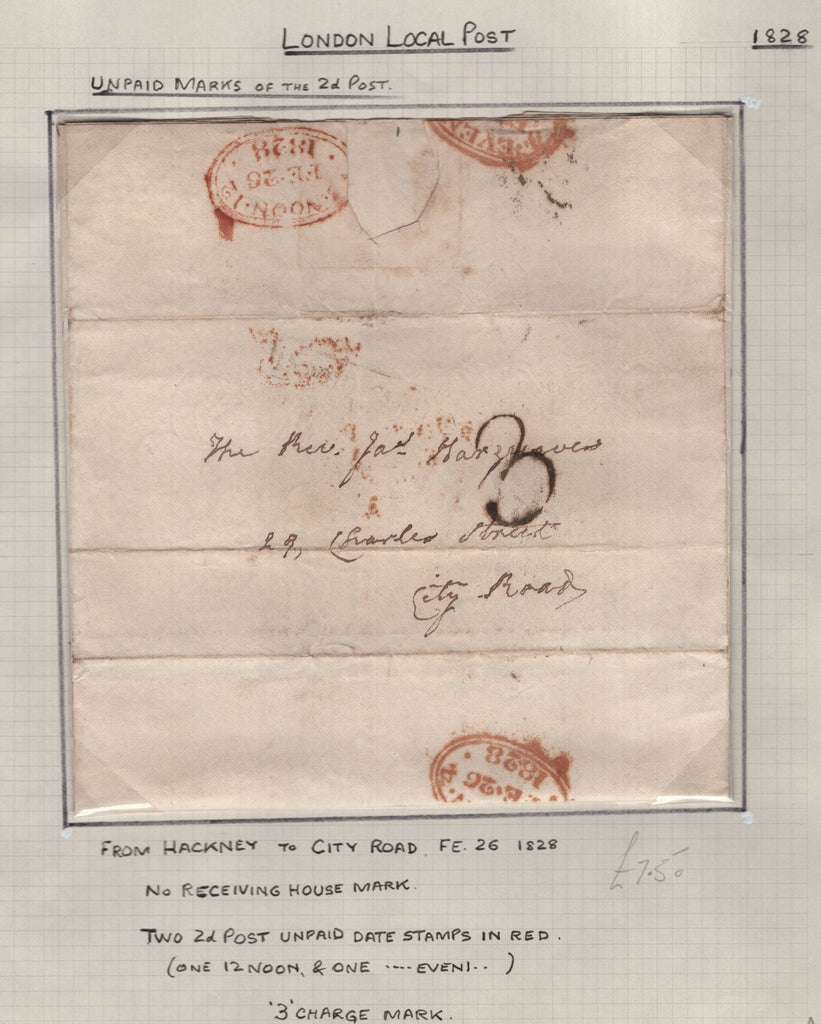 LONDON LOCAL POST
1828
UNPAID MARKS OF THE 2d POST.
NOON·12
FE·26
1828
EVEN
The Rev. Jas Hargreaves
3
29, Charles Street
City Road
1828
FE·26
FROM HACKNEY TO CITY ROAD, FE. 26 1828
£7.50
NO RECEIVING HOUSE MARK.
TWO 2d POST UNPAID DATE STAMPS IN RED.
(ONE 12 NOON, & ONE ····EVENI·· )
'3' CHARGE MARK.